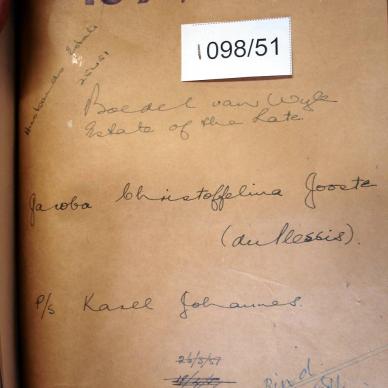 1098/51
Husband's Estate
Boedel van Wyle
Estate of the Late
Jacoba Christoffelina Jooste
(du Plessis).
p/s Karel Johannes.
26/5/51